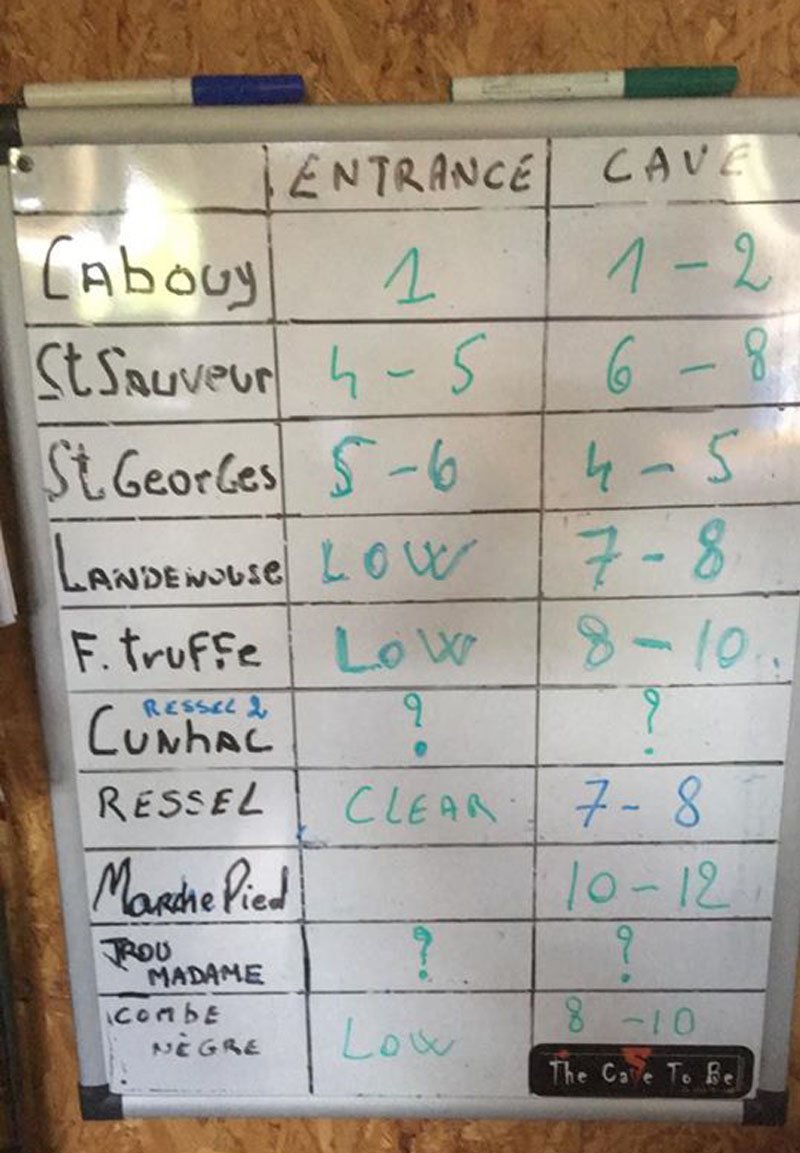 ENTRANCE CAVE
Cabouy 1 1-2
St Sauveur 4-5 6-8
St Georges 5-6 4-5
LANDENOUSE LOW 7-8
F. truffe LOW 8-10
RESSEL 2
CUNhAC ? ?
RESSEL CLEAR 7-8
Marche Pied 10-12
TROU
MADAME ? ?
COMBE 8-10
NÈGRE LOW
The Cave To Be